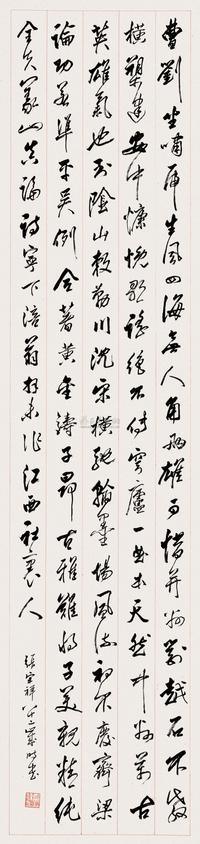 曹劉坐嘯虎生風四海無人角兩雄可惜并州劉越石不教
橫槊建安中慷慨歌謠絕不傳穹廬一曲本天然中州萬古
英雄氣也到陰山敕勒川沈宋橫馳翰墨場風流初不廢齊梁
論功若準平吳例合著黃金鑄子昂古雅難將子美親精純
全失義山真論詩寧下涪翁拜未作江西社裏人
張宗祥八十二歲時書